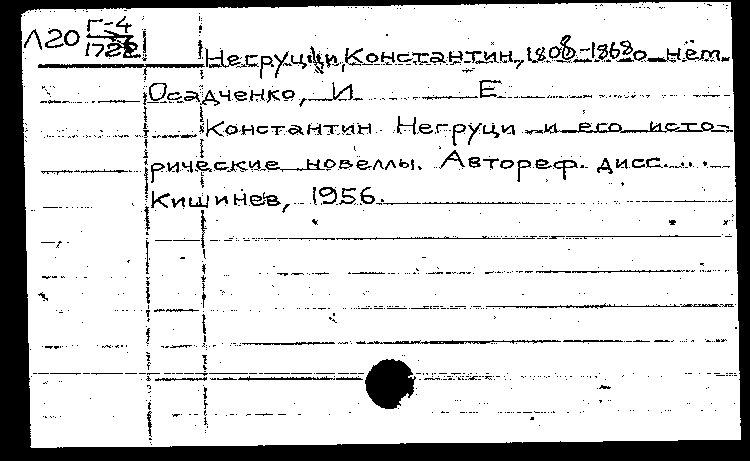 Л20 Г-4
1722
Негруци, Константин, 1808-1868 о нём
Осадченко, И Е
Константин Негруци и его исто-
рические новеллы. Автореф. дисс...
Кишинев, 1956.